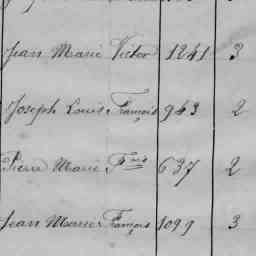 Jean Marie Victor 1241 3
Joseph Louis François 943 2
Pierre Marie Fois 637 2
Jean Marie François 1099 3